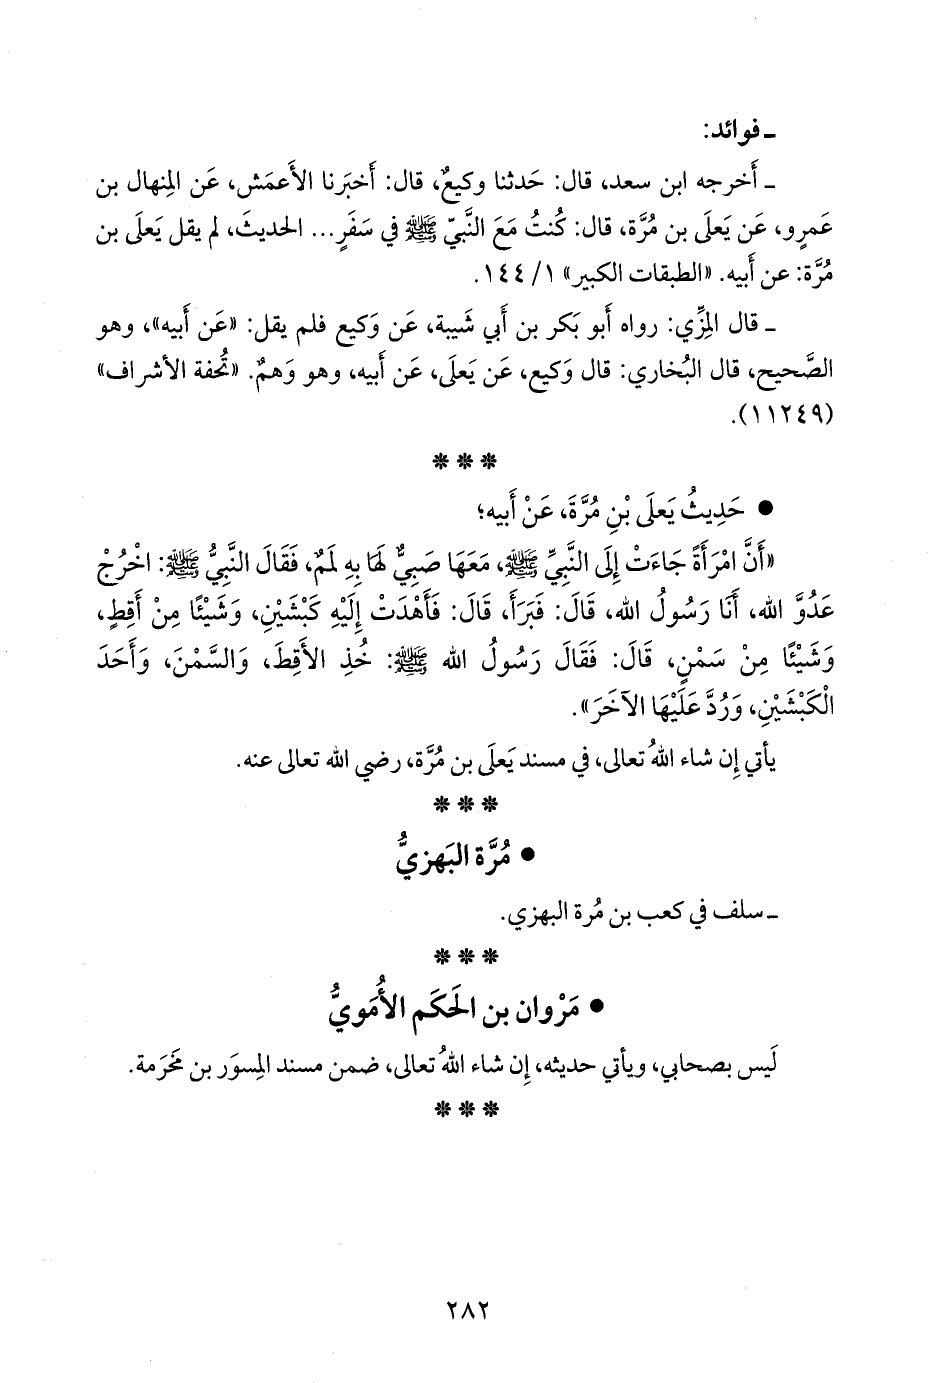 ـ فوائد:
ـ أَخرجه ابن سعد، قال: حَدثنا وكيعٌ، قال: أَخبَرنا الأَعمَش، عَن المِنهال بن
عَمرٍو، عَن يَعلَى بن مُرَّة، قال: كُنتُ مَعَ النَّبيّ ﷺ في سَفَرٍ... الحديثَ، لم يقل يَعلَى بن
مُرَّة: عن أَبيه. «الطبقات الكبير» ١/ ١٤٤.
ـ قال المِزِّي: رواه أَبو بَكر بن أَبي شَيبة، عَن وَكيع فلم يقل: «عَن أَبيه»، وهو
الصَّحيح، قال البُخاري: قال وَكيع، عَن يَعلَى، عَن أَبيه، وهو وَهمٌ. «تُحفة الأشراف»
(١١٢٤٩).
* * *
● حَدِيثُ يَعلَى بْنِ مُرَّةَ، عَنْ أَبيه؛
«أَنَّ امْرَأَةً جَاءَتْ إِلَى النَّبِيِّ ﷺ، مَعَهَا صَبِيٌّ لَهَا بِهِ لَمٌم، فَقَالَ النَّبِيُّ ﷺ: اخْرُجْ
عَدُوَّ الله، أَنَا رَسُولُ الله، قَالَ: فَبَرَأَ، قَالَ: فَأَهْدَتْ إِلَيْهِ كَبْشَيْنِ، وَشَيْئًا مِنْ أَقِطٍ،
وَشَيْئًا مِنْ سَمْنٍ، قَالَ: فَقَالَ رَسُولُ الله ﷺ: خُذِ الأَقِطَ، وَالسَّمْنَ، وَأَحَدَ
الْكَبْشَيْنِ، وَرُدَّ عَلَيْهَا الآخَرَ».
يأتي إِن شاء اللهُ تعالى، في مسند يَعلَى بن مُرَّة، رضي الله تعالى عنه.
* * *
● مُرَّة البَهزيُّ
ـ سلف في كعب بن مُرة البهزي.
* * *
● مَرْوان بن الحَكَم الأُمَويُّ
لَيس بصحابي، ويأتي حديثه، إِن شاء اللهُ تعالى، ضمن مسند المِسوَر بن مَخَرَمة.
* * *
٢٨٢